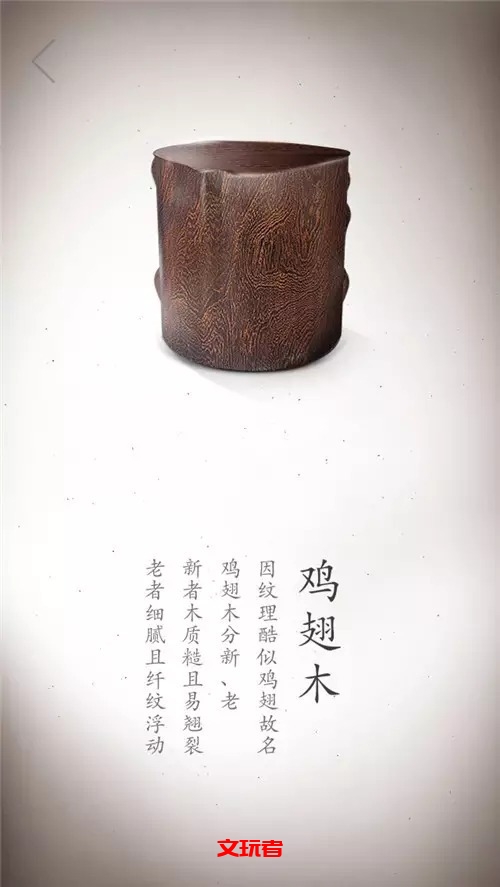 鸡翅木
因纹理酷似鸡翅故名
鸡翅木分新、老
新者木质糙且易翘裂
老者细腻且纤纹浮动
文玩者